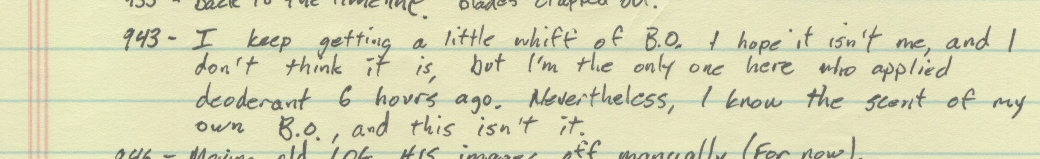 back to the timeline. Blades crapped out.
943 - I keep getting a little whiff of B.O. I hope it isn't me, and I
don't think it is, but I'm the only one here who applied
deoderant 6 hours ago. Nevertheless, I know the scent of my
own B.O., and this isn't it.
946 - Moving old LOG HIS images off manually (for now).